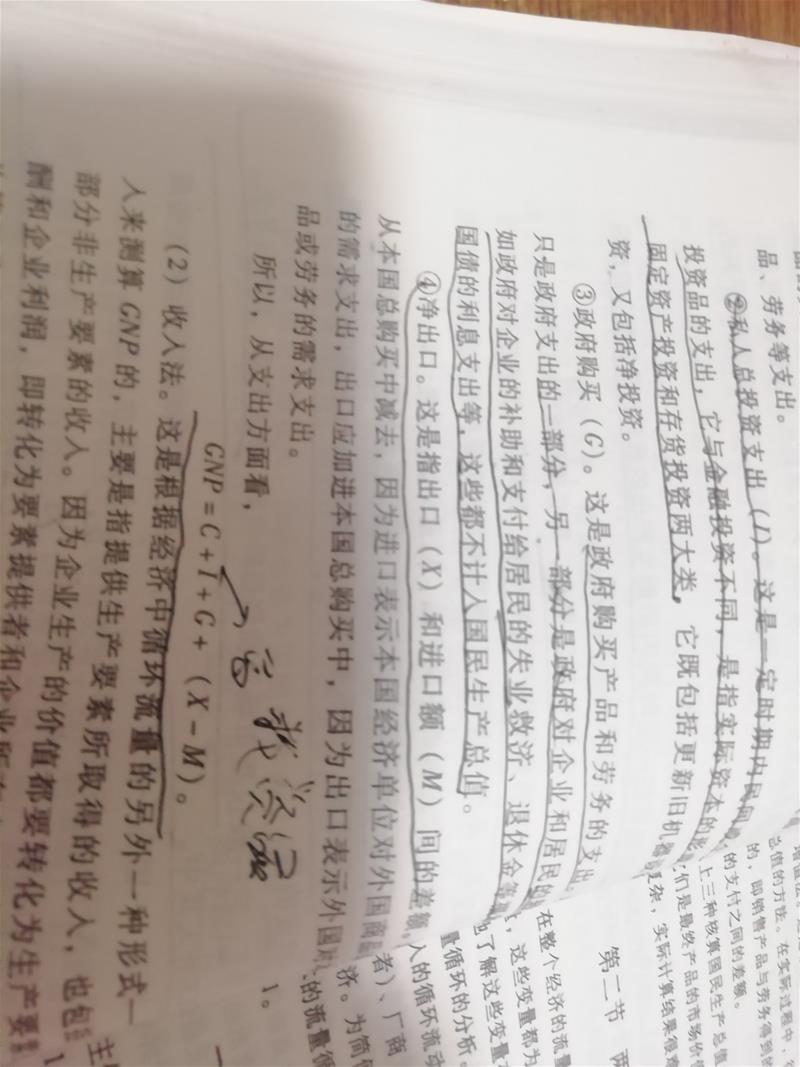 品、劳务等支出。
②私人总投资支出（I）。这是一定时期内民间
投资品的支出，它与金融投资不同，是指实际资本的形
固定资产投资和存货投资两大类，它既包括更新旧机器
资，又包括净投资。
③政府购买（G）。这是政府购买产品和劳务的支出，
只是政府支出的一部分，另一部分是政府对企业和居民的
如政府对企业的补助和支付给居民的失业救济、退休金等
国债的利息支出等，这些都不计入国民生产总值。
④净出口。这是指出口（X）和进口额（M）间的差额，
从本国总购买中减去，因为进口表示本国经济单位对外国商品
的需求支出，出口应加进本国总购买中，因为出口表示外国
品或劳务的需求支出。
所以，从支出方面看，
GNP = C + I + G + （X − M）。
（2）收入法。这是根据经济中循环流量的另外一种形式—
人来测算 GNP 的，主要是指提供生产要素所取得的收入，也包
部分非生产要素的收入。因为企业生产的价值都要转化为生产要
酬和企业利润，即转化为要素提供者和企业所
总值的方法。在实际过程中，
的，即销售产品与劳务得到
的支付之间的差额。
上三种核算国民生产总值
们是最终产品的市场价值
复杂，实际计算结果很难
第二节 两
在整个经济的流量
，这些变量都为
了解这些变量
量循环的分析。
人的循环流动
者）、厂商
济。为简
的流量循
1。